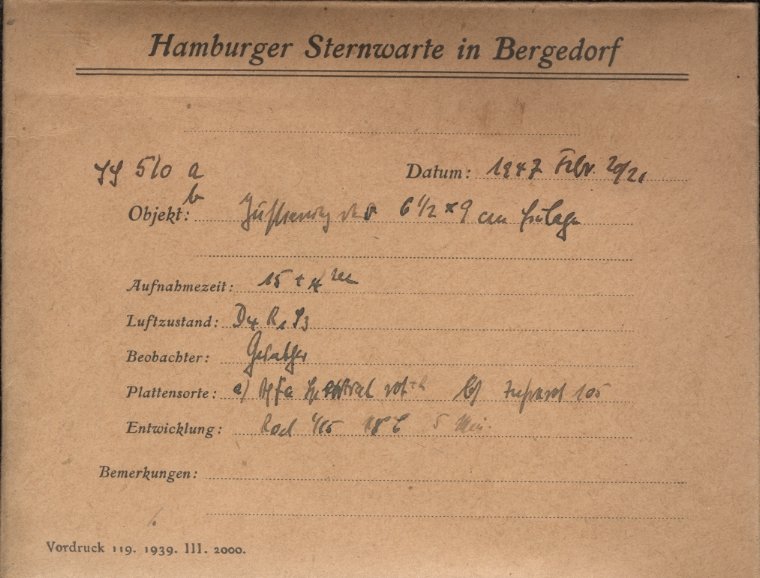 Hamburger Sternwarte in Bergedorf
510 a
b
Datum: 1947 Febr 20/21
Objekt: Justierung der 6 1/2 × 9 cm
Aufnahmezeit: 15
Luftzustand:
Beobachter:
Plattensorte: a) Agfa Spektral rot b) 105
Entwicklung: Rod 18° C 5 Min.
Bemerkungen:
Vordruck 119. 1939. III. 2000.